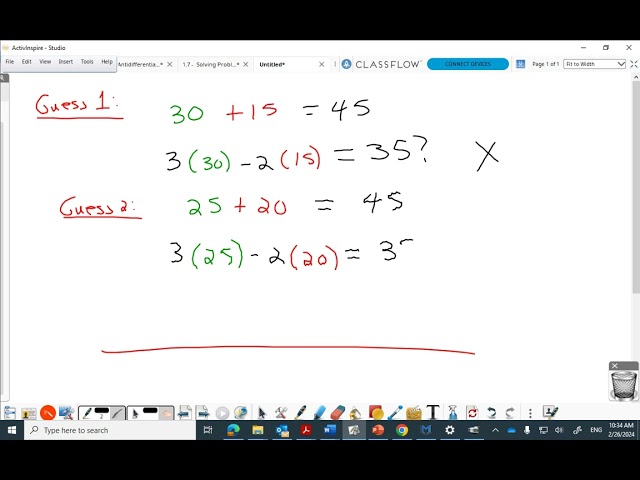 ActivInspire - Studio
File Edit View Insert Tools Help
Antidifferentia...* 1.7 - Solving Probl...* Untitled* CLASSFLOW CONNECT DEVICES Page 1 of 1 Fit to Width
Guess 1: 30 + 15 = 45
3 (30) - 2 (15) = 35? X
Guess 2: 25 + 20 = 45
3 (25) - 2 (20) = 3
Type here to search
ENG
10:34 AM
2/26/2024